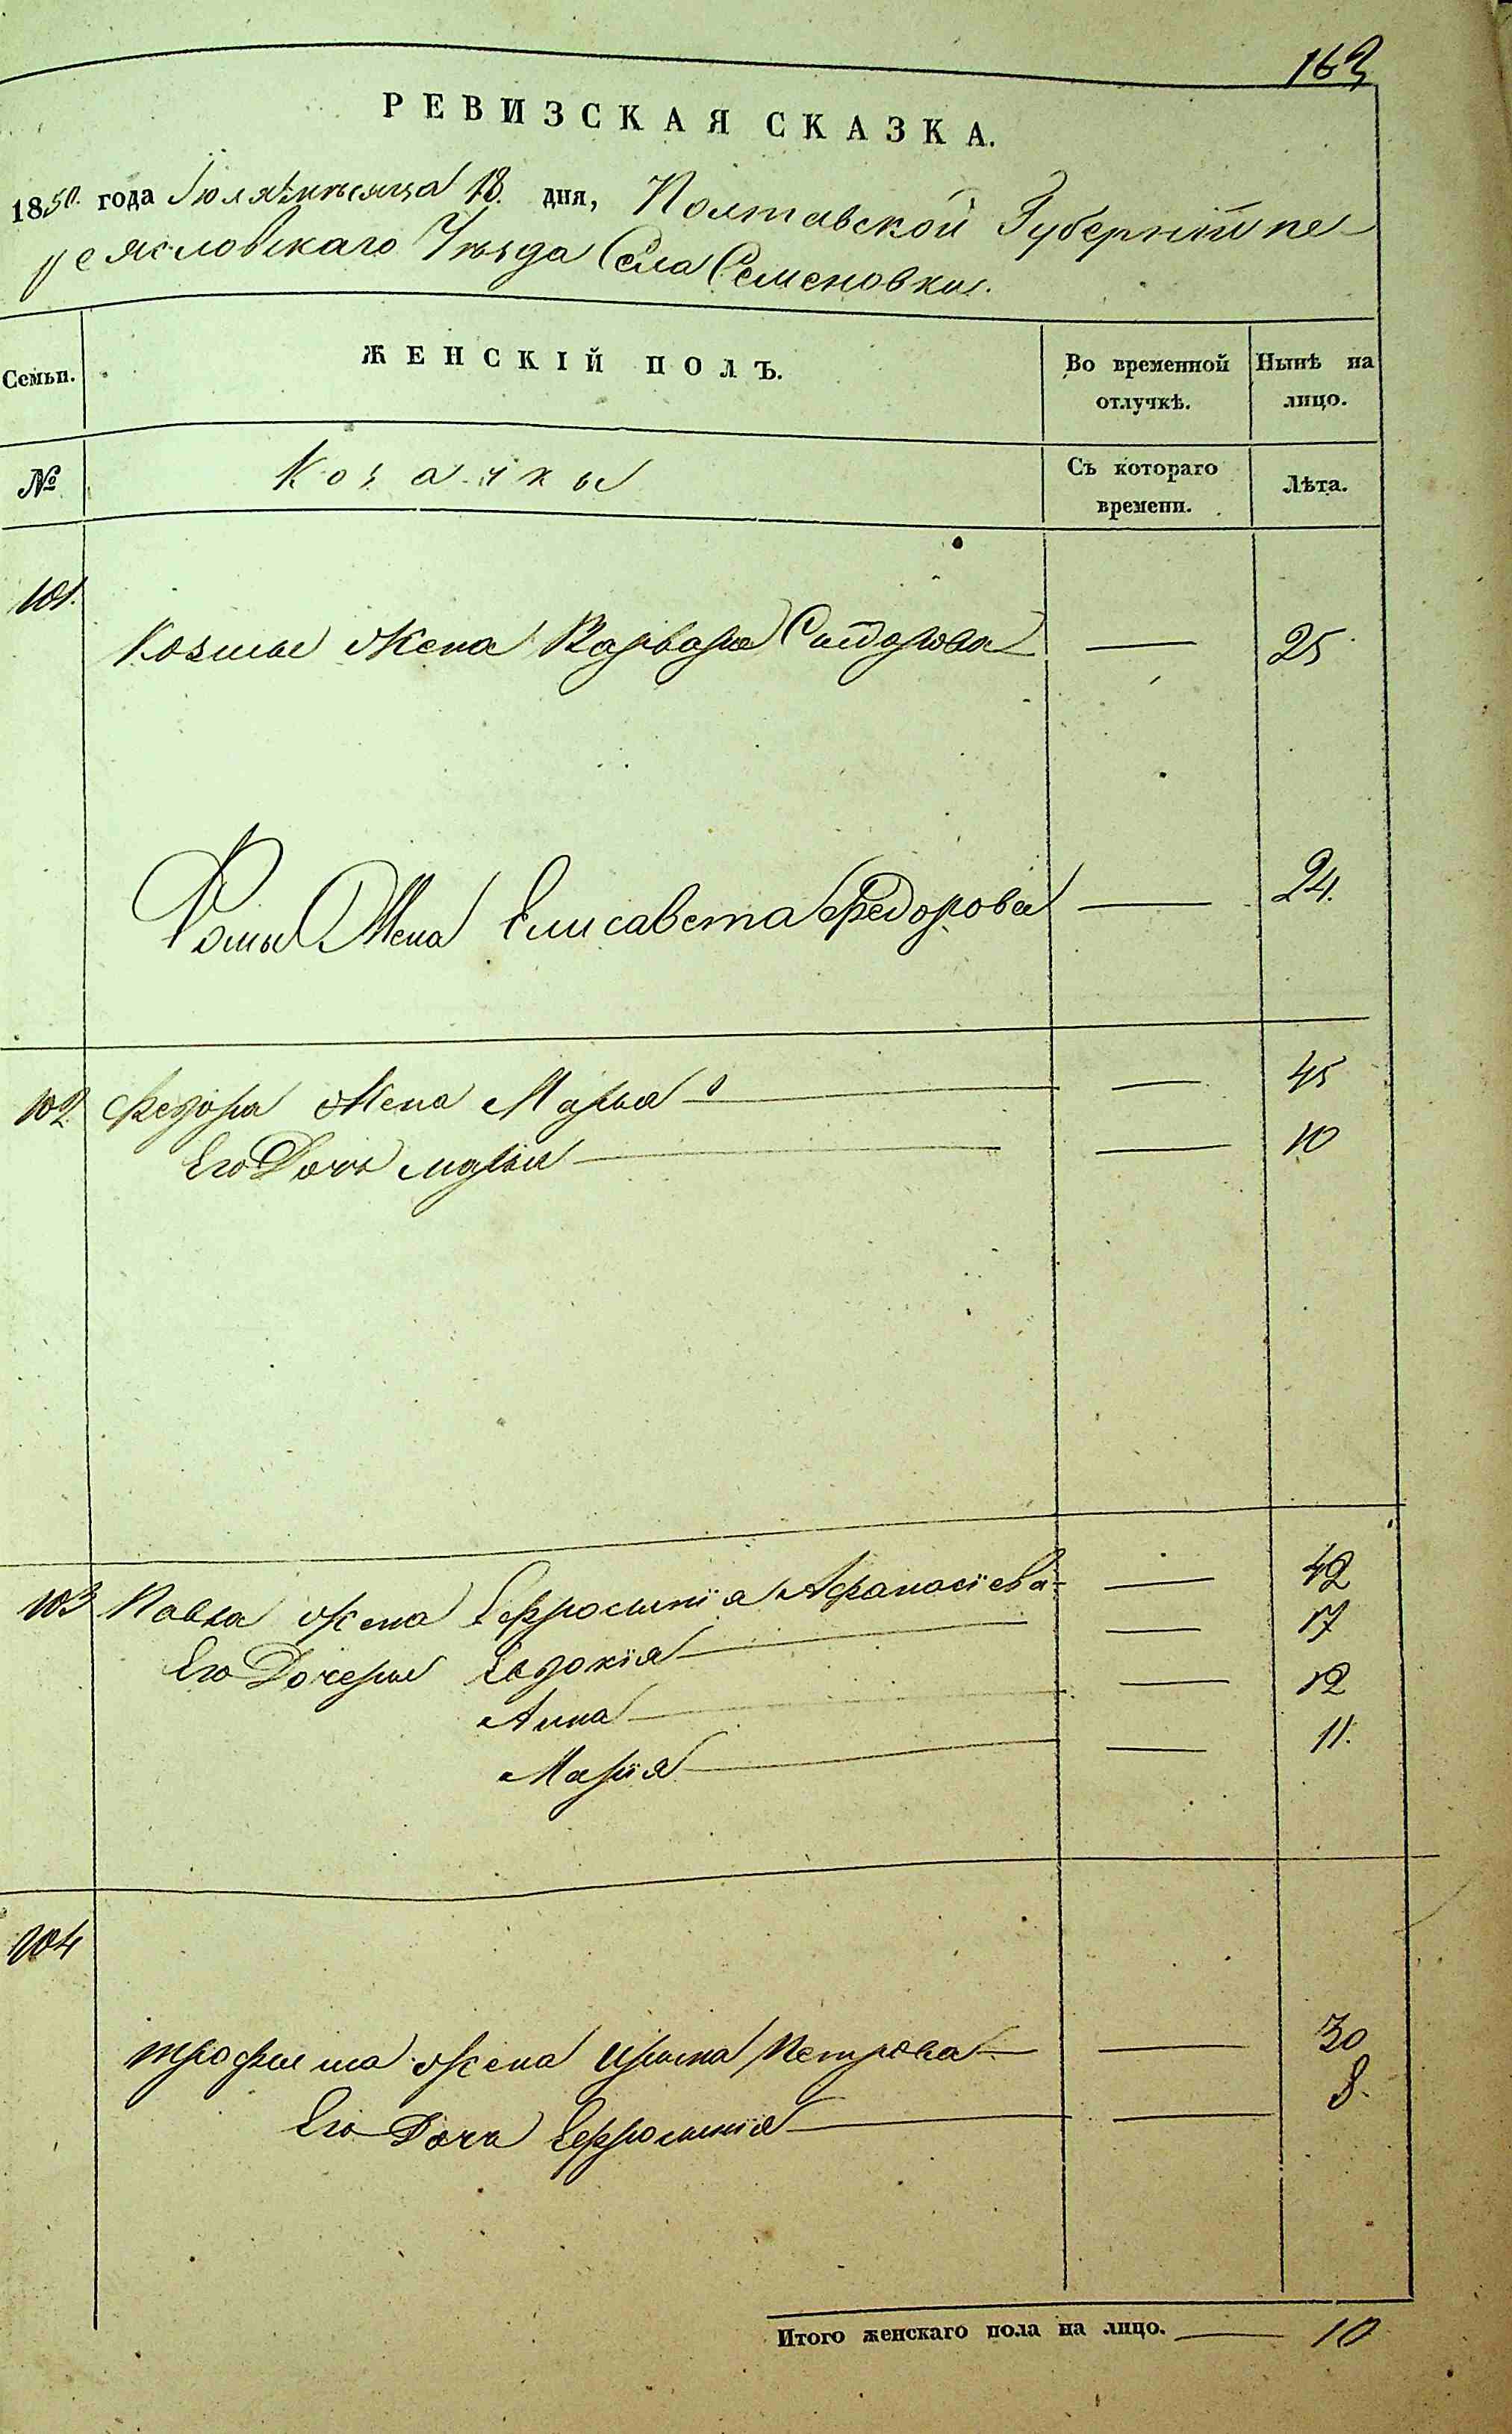 163
РЕВИЗСКАЯ СКАЗКА.
1850. года Іюля мѣсяца 18. дня, Полтавской Губерніи пе-
реясловскаго Уѣзда Села Семеновки.
Семьи. ЖЕНСКІЙ ПОЛЪ. Во временной отлучкѣ. Нынѣ на лицо.
№ Козачки Съ котораго времени. Лѣта.
101. Козмы жена Варвара Сидорова — 25
Фомы Жена Елисавета Федорова — 24.
102 Федора Жена Марья — 45
Его Дочь марья — 10
103 Павла жена Ефросинія Афанасіева — 42
Его Дочеры Евдокія — 17
Анна — 12
Марія — 11.
104
трофима жена Ирина Петрова — 30
Его Дочь Ефросинія — 8.
Итого женскаго пола на лицо. — 10